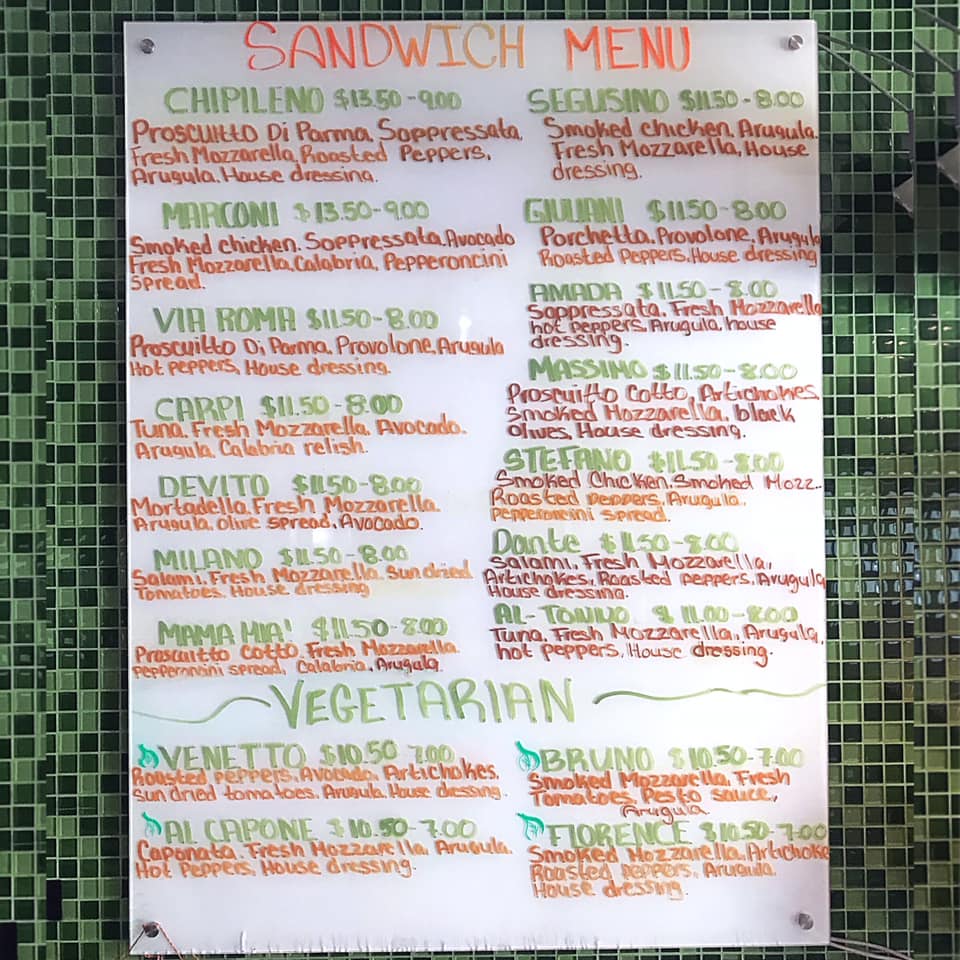 SANDWICH MENU
CHIPILENO $13.50-9.00
Proscuitto Di Parma, Soppressata,
Fresh Mozzarella, Roasted Peppers,
Arugula. House dressing.
MARCONI $13.50-9.00
Smoked chicken. Soppressata, Avocado
Fresh Mozzarella, Calabria, Pepperoncini
Spread.
VIA ROMA $11.50-8.00
Proscuitto Di Parma, Provolone, Arugula
Hot peppers, House dressing.
CARPI $11.50-8.00
Tuna, Fresh Mozzarella, Avocado.
Arugula, Calabria relish.
DEVITO $11.50-8.00
Mortadella, Fresh Mozzarella
Arugula, Olive spread, Avocado.
MILANO $11.50-8.00
Salami, Fresh Mozzarella, Sun dried
Tomatoes. House dressing
MAMA MIA! $11.50-8.00
Proscuitto Cotto, Fresh Mozzarella.
Pepperoncini spread, Calabria, Arugula.
SEGUSINO $11.50-8.00
Smoked chicken, Arugula.
Fresh Mozzarella, House
dressing.
GIULIANI $11.50-8.00
Porchetta, Provolone, Arugula
Roasted Peppers, House dressing
AMADA $11.50-8.00
Soppressata, Fresh Mozzarella
hot peppers, Arugula, house
dressing.
MASSIMO $11.50-8.00
Proscuitto Cotto, Artichokes
Smoked Mozzarella, black
Olives, House dressing.
STEFANO $11.50-8.00
Smoked Chicken. Smoked Mozz..
Roasted peppers, Arugula.
Pepperoncini spread.
Dante $11.50-8.00
Salami, Fresh Mozzarella,
Artichokes, Roasted peppers, Arugula
House dressing.
AL-TONNO $11.00-8.00
Tuna, Fresh Mozzarella, Arugula,
hot peppers, House dressing.
VEGETARIAN
VENETTO $10.50 7.00
Roasted peppers, Avocado, Artichokes,
Sun dried tomatoes. Arugula. House dressing.
AL CAPONE $10.50-7.00
Caponata. Fresh Mozzarella, Arugula.
Hot Peppers, House dressing.
BRUNO $10.50-7.00
Smoked Mozzarella, Fresh
Tomatoes, Pesto sauce,
Arugula
FLORENCE $10.50-7.00
Smoked Mozzarella, Artichoke
Roasted peppers, Arugula.
House dressing.